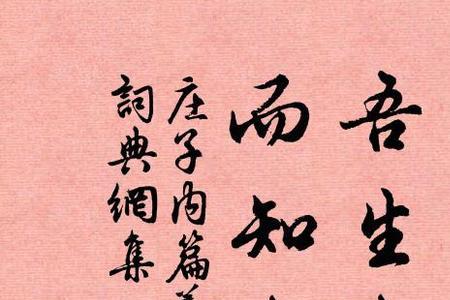 吾生
而知
庄子内篇
詞典網集